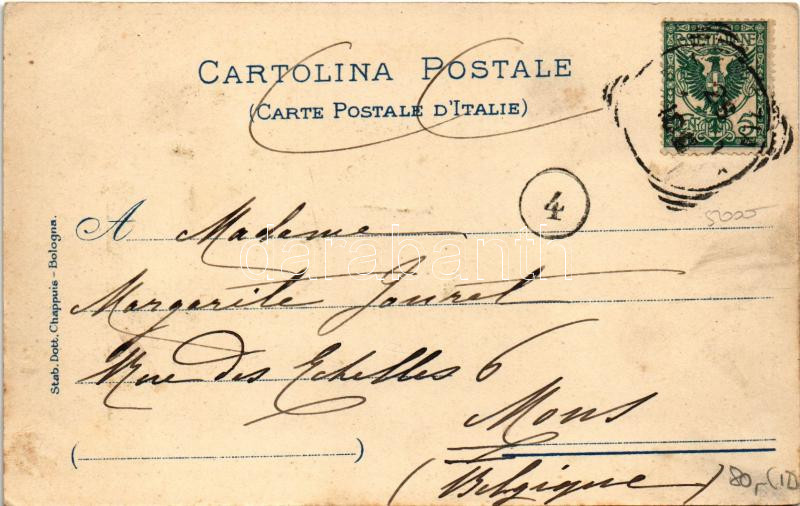 CARTOLINA POSTALE
(CARTE POSTALE D'ITALIE)
POSTE ITALIANE
4
A Madame
Margarite Jouret
Rue des Echelles 6
Mons
(Belgique)
Stab. Dott. Chappuis - Bologna.
darabanth
80,-